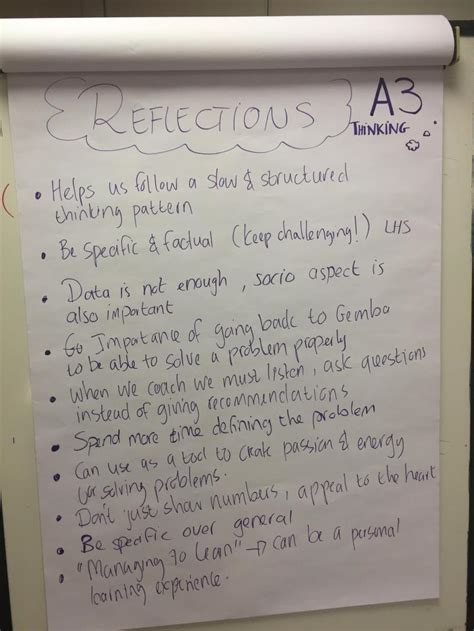 REFLECTIONS
A3
THINKING
• Helps us follow a slow & structured
thinking pattern
• Be specific & factual (keep challenging!) LHS
• Data is not enough, socio aspect is
also important
• Go Importance of going back to Gemba
to be able to solve a problem properly
• When we coach we must listen, ask questions
instead of giving recommendations
• Spend more time defining the problem
• Can use as a tool to create passion & energy
for solving problems.
• Don't just show numbers, appeal to the heart
• Be specific over general
• "Managing to Lean" → can be a personal
learning experience.